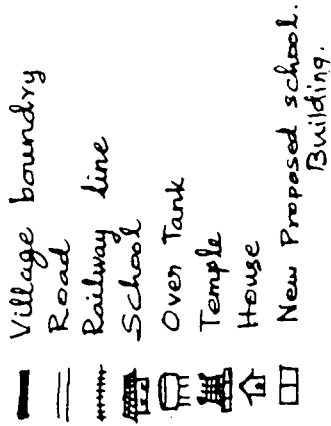 Village boundry
Road
Railway line
School
Over Tank
Temple
House
New Proposed school.
Building.